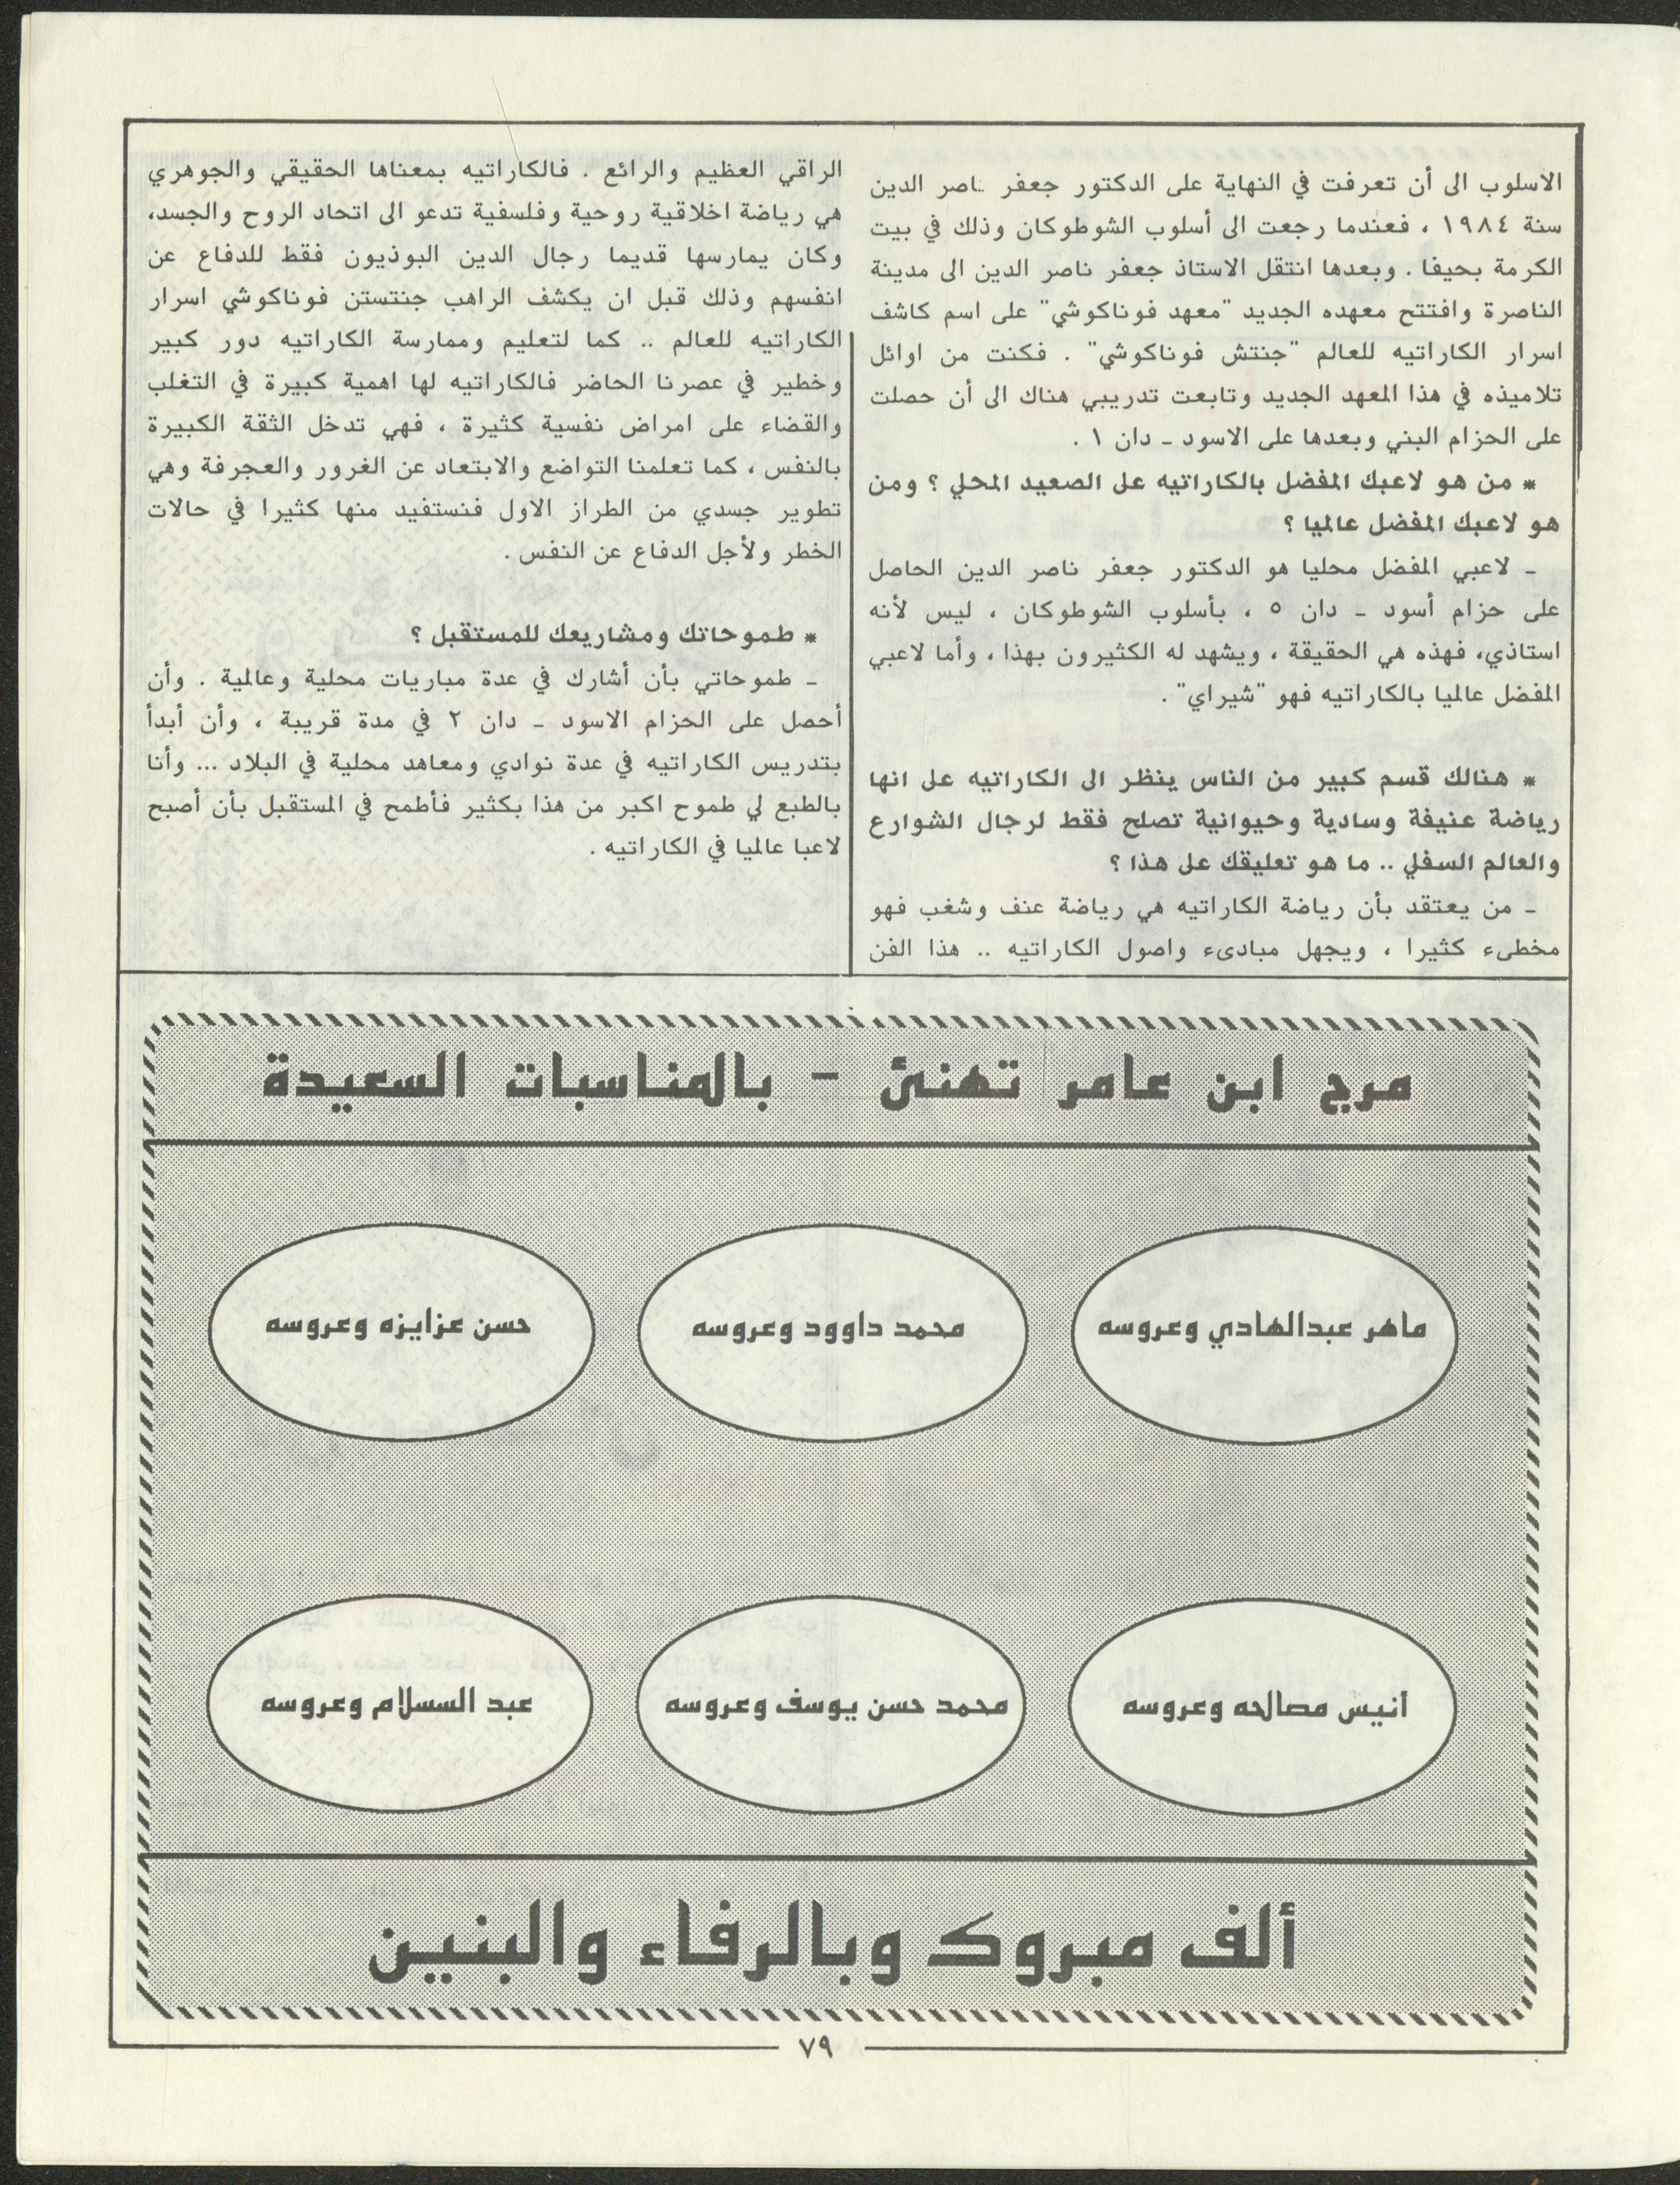 الاسلوب الى أن تعرفت في النهاية على الدكتور جعفر ناصر الدين
سنة ١٩٨٤ ، فعندما رجعت الى أسلوب الشوطوكان وذلك في بيت
الكرمة بحيفا . وبعدها انتقل الاستاذ جعفر ناصر الدين الى مدينة
الناصرة وافتتح معهده الجديد "معهد فوناكوشي" على اسم كاشف
اسرار الكاراتيه للعالم "جنتش فوناكوشي" . فكنت من اوائل
تلاميذه في هذا المعهد الجديد وتابعت تدريبي هناك الى أن حصلت
على الحزام البني وبعدها على الاسود ـ دان ١ .
* من هو لاعبك المفضل بالكاراتيه على الصعيد المحلي ؟ ومن
هو لاعبك المفضل عالميا ؟
ـ لاعبي المفضل محليا هو الدكتور جعفر ناصر الدين الحاصل
على حزام أسود ـ دان ٥ ، بأسلوب الشوطوكان ، ليس لأنه
استاذي، فهذه هي الحقيقة ، ويشهد له الكثيرون بهذا ، وأما لاعبي
المفضل عالميا بالكاراتيه فهو "شيراي" .
* هنالك قسم كبير من الناس ينظر الى الكاراتيه على انها
رياضة عنيفة وسادية وحيوانية تصلح فقط لرجال الشوارع
والعالم السفلي .. ما هو تعليقك على هذا ؟
ـ من يعتقد بأن رياضة الكاراتيه هي رياضة عنف وشغب فهو
مخطىء كثيرا ، ويجهل مبادىء واصول الكاراتيه .. هذا الفن
الراقي العظيم والرائع . فالكاراتيه بمعناها الحقيقي والجوهري
هي رياضة اخلاقية روحية وفلسفية تدعو الى اتحاد الروح والجسد،
وكان يمارسها قديما رجال الدين البوذيون فقط للدفاع عن
انفسهم وذلك قبل ان يكشف الراهب جنتستن فوناكوشي اسرار
الكاراتيه للعالم .. كما لتعليم وممارسة الكاراتيه دور كبير
وخطير في عصرنا الحاضر فالكاراتيه لها اهمية كبيرة في التغلب
والقضاء على امراض نفسية كثيرة ، فهي تدخل الثقة الكبيرة
بالنفس ، كما تعلمنا التواضع والابتعاد عن الغرور والعجرفة وهي
تطوير جسدي من الطراز الاول فنستفيد منها كثيرا في حالات
الخطر ولأجل الدفاع عن النفس .
* طموحاتك ومشاريعك للمستقبل ؟
ـ طموحاتي بأن أشارك في عدة مباريات محلية وعالمية . وأن
أحصل على الحزام الاسود ـ دان ٢ في مدة قريبة ، وأن أبدأ
بتدريس الكاراتيه في عدة نوادي ومعاهد محلية في البلاد ... وأنا
بالطبع لي طموح اكبر من هذا بكثير فأطمح في المستقبل بأن أصبح
لاعبا عالميا في الكاراتيه .
مرج ابن عامر تهنئ - بالمناسبات السعيدة
ماهر عبدالهادي وعروسه
محمد داوود وعروسه
حسن عزايزه وعروسه
انيس مصالحه وعروسه
محمد حسن يوسف وعروسه
عبد السسلام وعروسه
ألف مبروك وبالرفاء والبنين
٧٩